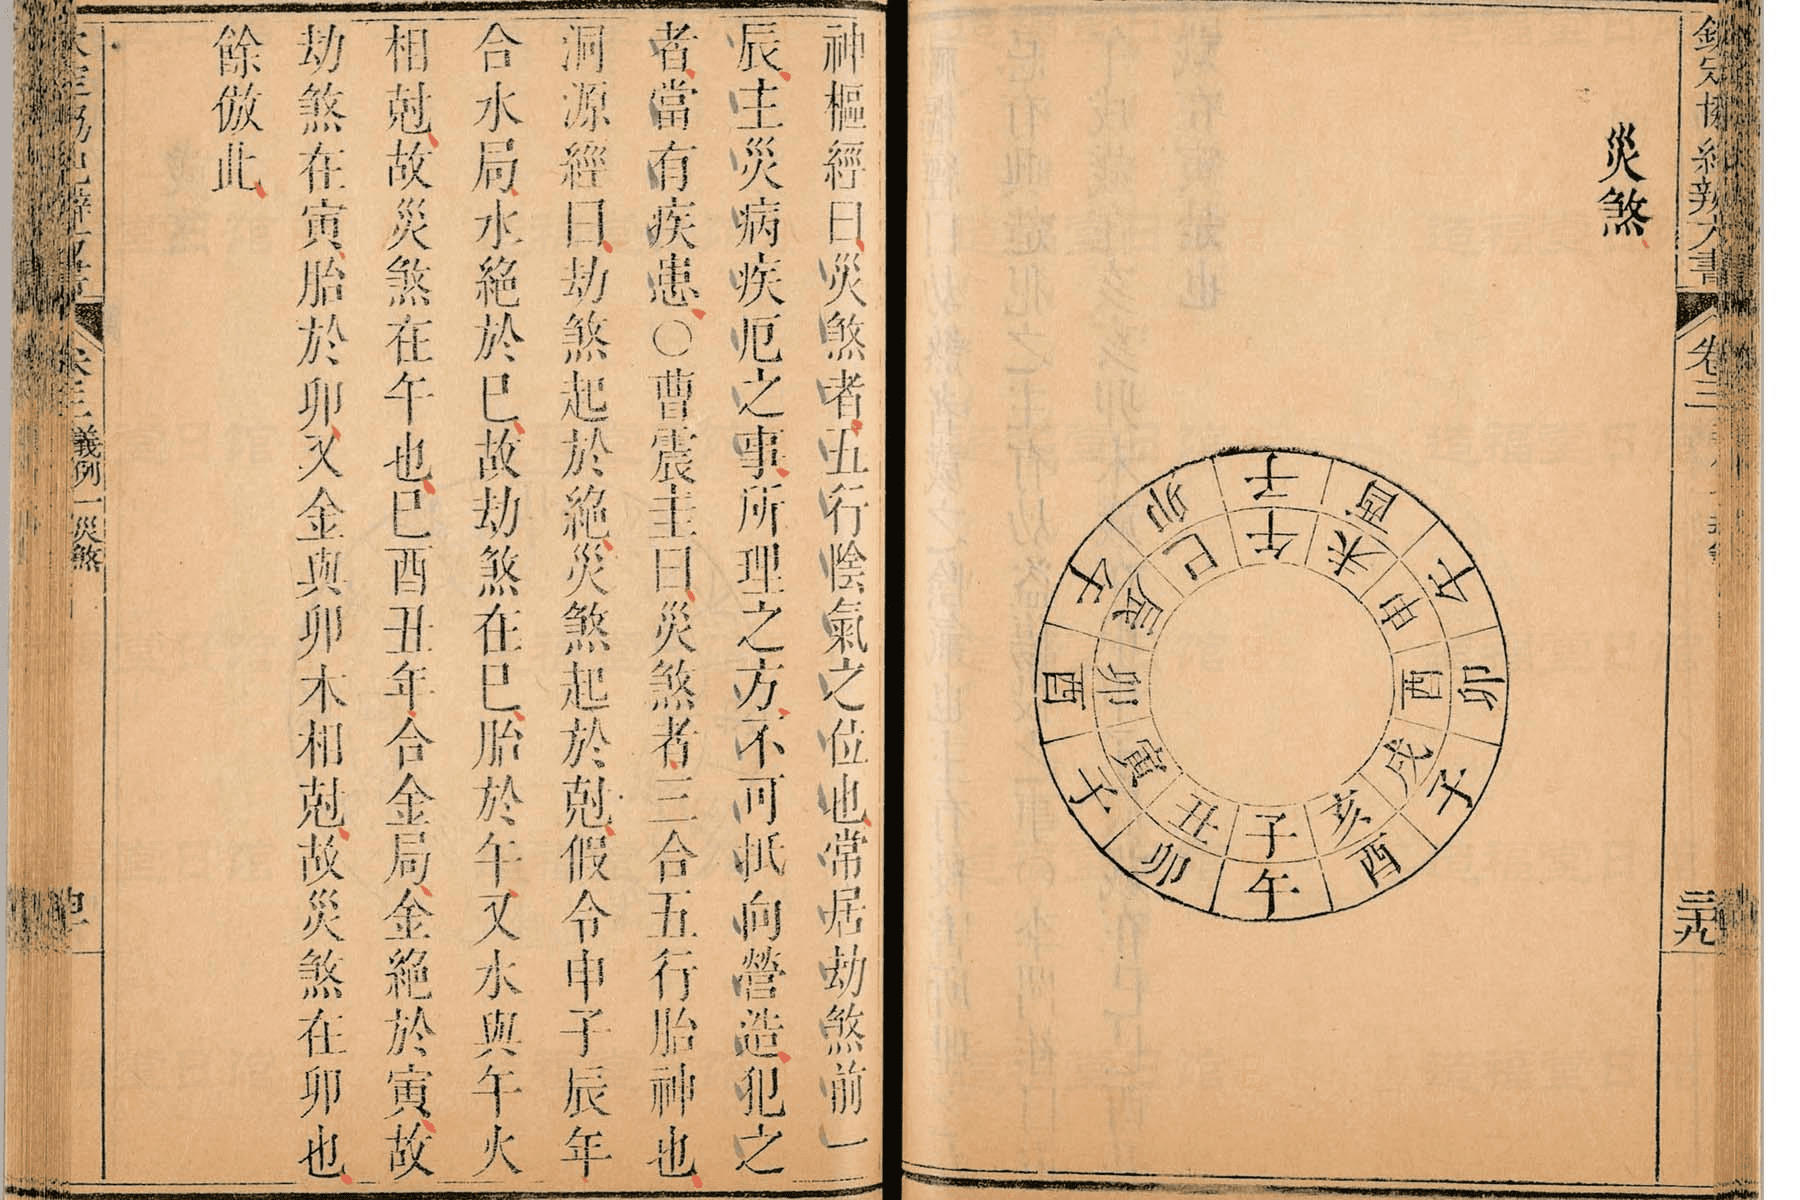 欽定協紀辨方書
卷三
三十九
災煞
子
酉
午
卯
子
酉
午
卯
子
酉
午
卯
午
未
申
酉
戌
亥
子
丑
寅
卯
辰
巳
神樞經曰災煞者五行陰氣之位也常居劫煞前一
辰主災病疾厄之事所理之方不可抵向營造犯之
者當有疾患○曹震圭曰災煞者三合五行胎神也
洞源經曰劫煞起於絶災煞起於尅假令申子辰年
合水局水絶於巳故劫煞在巳胎於午又水與午火
相尅故災煞在午也巳酉丑年合金局金絶於寅故
劫煞在寅胎於卯又金與卯木相尅故災煞在卯也
餘倣此
卷三
義例一
災煞